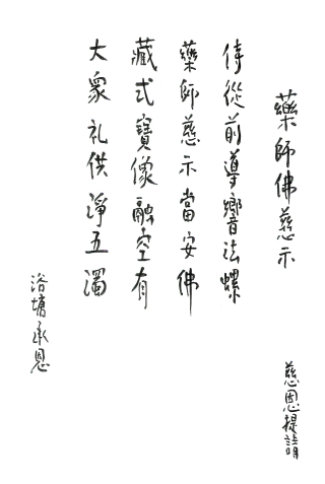 藥師佛慈示
慈恩提請
侍從前導響法螺
藥師慈示當安佛
藏式寶像融空有
大眾礼供淨五濁
浴塘承恩